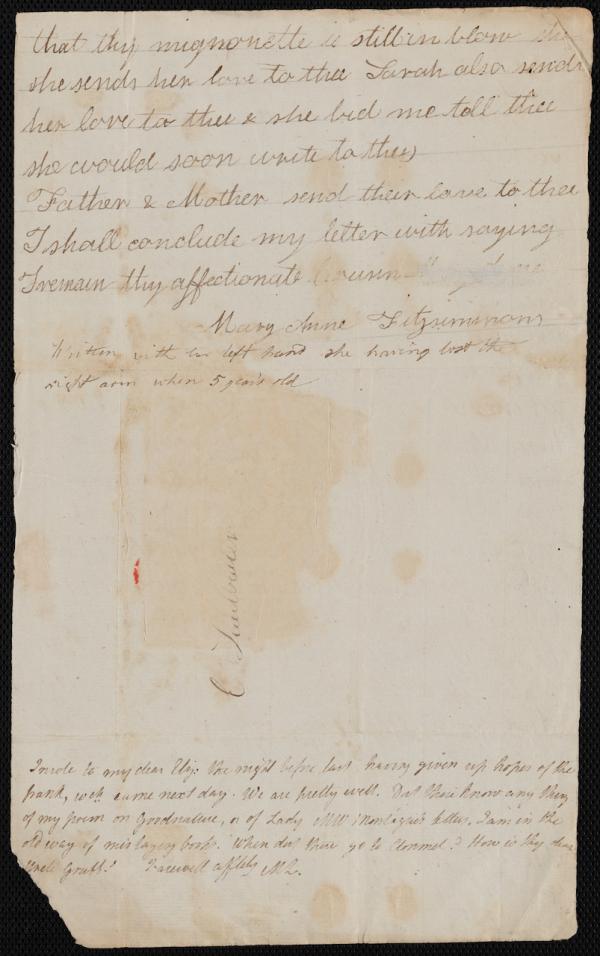 that thy mignonette is still in blow she
she sends her love to thee Sarah also sends
her love to thee & she bid me tell thee
she would soon write to thee
Father & Mother send their love to thee
I shall conclude my letter with saying
I remain thy affectionate
Mary Anne Fitzsimmons
Written with her left hand she having lost the
right arm when 5 years old
I wrote to my dear Eliz: the night before last having given up hopes of the
frank, wch. came next day. We are pretty well. Dost thou know any thing
of my poem on Goodnature, or of Lady MW Montague's letters. I am in the
old way of mislaying books. When dost thou go to Clonmel? How is thy dear
Uncle Grubb? Farewell affly ML.